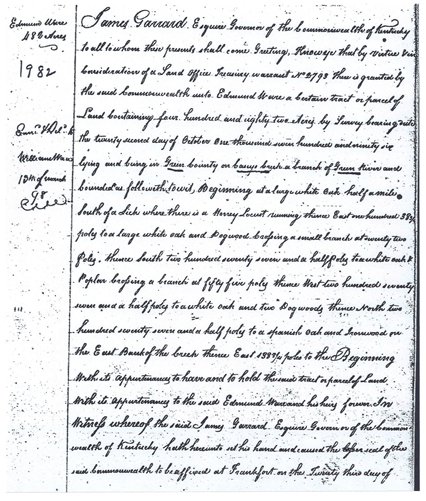 Edmund Ware
482 Acres
1982
William Ware
13th of march
98
James Garrard Esquire Governor of the Commonwealth of Kentucky
to all to whom these presents shall come Greeting, Knowye that by Virtue & in
Consideration of a Land Office Treasury warrant No 2793 there is granted by
the said Commonwealth unto Edmund Ware a Certain tract or parcel of
Land Containing four hundred and eighty two Acres by Survey bearing date
the twenty second day of October One thousand seven hundred and ninety six
lying and being in Green County on Caneys Creek a branch of Green River and
bounded as followeth towit, Beginning at a large white Oak half a mile
South of a Lick where there is a Honey Locust running thence East one hundred 38½
poles to a large white oak and Dogwood Crossing a small branch at twenty two
Poles, thence South two hundred seventy seven and a half Poles to a white oak &
Poplar Crossing a branch at fifty five poles thence West two hundred seventy
seven and a half poles to a white oak and two Dogwoods thence North two
hundred seventy seven and a half poles to a spanish Oak and Ironwood on
the East Bank of the Creek thence East 138½ poles to the Beginning
With its appurtenances to have and to hold the said tract or parcel of Land
With its appurtenances to the said Edmund Ware and his heirs forever. In
Witness whereof the said James Garrard Esquire Governor of the Common
wealth of Kentucky hath hereunto set his hand and caused the seal of the
said Commonwealth to be affixed at Frankfort on the Twenty third day of